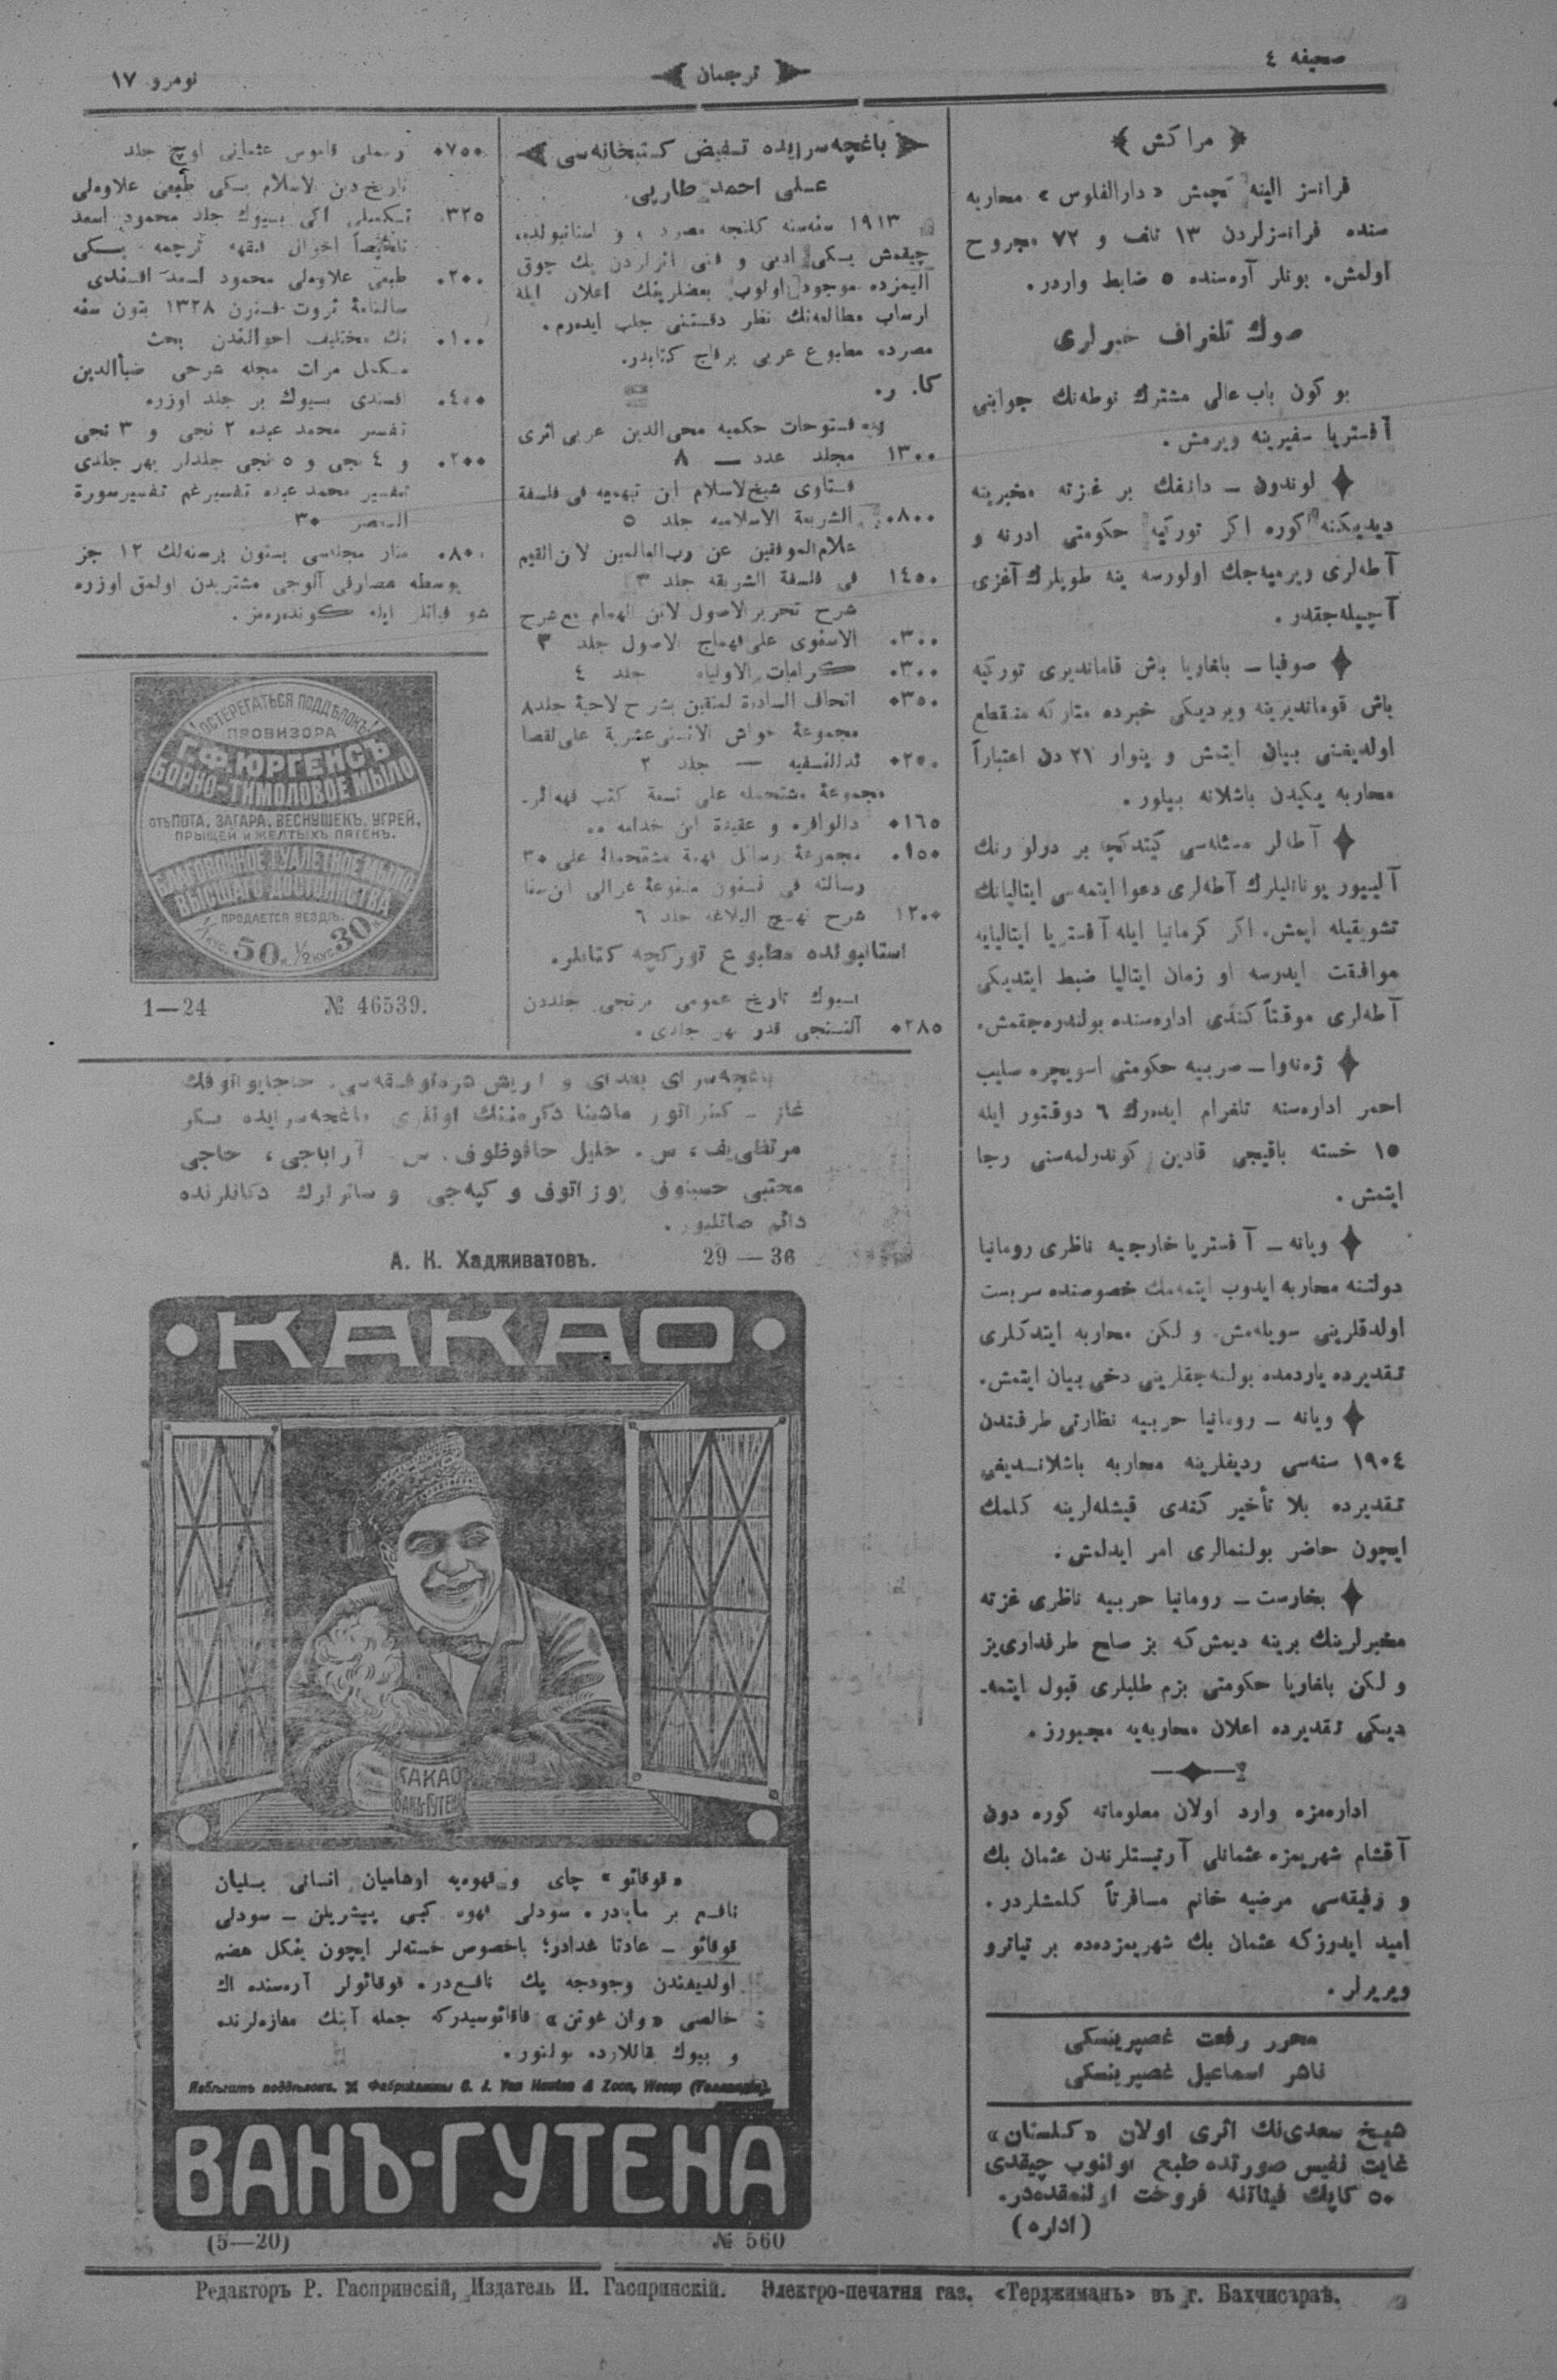 صحیفه ٤
ترجمان
نومرو ١٧
﴿ مراكش ﴾
فرانسز الینه كچمش «دارالفلوس» محاربه
سنده فرانسزلردن ١٣ تلف و ٧٢ مجروح
اولمش. بونلر آره‌سنده ٥ ضابط واردر.
صوك تلغراف خبرلری
بو كون باب عالی مشترك نوطه‌نك جوابنی
آفستریا سفیرینه ویرمش.
لوندون ــ دانفك بر غزته مخبرینه
دیدیكنه كوره اكر توركیه حكومتی ادرنه و
آطه‌لری ویرمیه‌جك اولورسه ینه طوپلرك آغزی
آچیله‌جقدر.
صوفیا ــ بلغاریا باش قاماندیری توركیه
باش قوماندیرینه ویردیكی خبرده متاركه منقطع
اولدیغنی بیان ایتمش و ینوار ٢١ دن اعتباراً
محاربه یكیدن باشلانه بیلور.
آطه‌لر مسئله‌سی كیتدكچه بر دولو رنك
آلییور یونانلیلرك آطه‌لری دعوا ایتمه‌سی ایتالیانك
تشویقیله ایمش. اكر كرمانیا ایله آفستریا ایتالیایه
موافقت ایدرسه او زمان ایتالیا ضبط ایتدیكی
آطه‌لری موقتاً كندی اداره‌سنده بولندره‌جقمش.
ژه‌نه‌وا ــ صربیه حكومتی اسویچره صلیب
احمر اداره‌سنه تلغرام ایده‌رك ٦ دوقتور ایله
١٥ خسته باقیجی قادین كوندرلمه‌سنی رجا
ایتمش.
ویانه ــ آفستریا خارجیه ناظری رومانیا
دولتنه محاربه ایدوب ایتمه‌مك خصوصنده سربست
اولدقلرینی سویله‌مش. و لكن محاربه ایتدكلری
تقدیرده یاردمده بولنه‌جقلرینی دخی بیان ایتمش.
ویانه ــ رومانیا حربیه نظارتی طرفندن
١٩٠٤ سنه‌سی ردیفلرینه محاربه باشلاندیغی
تقدیرده بلا تأخیر كندی قیشله‌لرینه كلمك
ایچون حاضر بولنمالری امر ایدلمش.
بخارست ــ رومانیا حربیه ناظری غزته
مخبرلرینك برینه دیمش‌كه بز صلح طرفداری‌یز
و لكن بلغاریا حكومتی بزم طلبلری قبول ایتمه‌ـ
دیكی تقدیرده اعلان محاربه‌یه مجبورز.
اداره‌مزه وارد اولان معلوماته كوره دون
آقشام شهریمزه عثمانلی آرتیستلرندن عثمان بك
و رفیقه‌سی مرضیه خانم مسافرتاً كلمشلردر.
امید ایدرزكه عثمان بك شهریمزده‌ده بر تیاترو
ویریرلر.
محرر رفعت غصپرینسكی
ناشر اسماعیل غصپرینسكی
شیخ سعدی‌نك اثری اولان «كلستان»
غایت نفیس صورتده طبع اولنوب چیقدی
٥٠ كاپك فیئاتله فروخت اولنمقده‌در.
(اداره)
باغچه‌سرایده تفیض كتبخانه‌سی
علی احمد طارپی
١٩١٣ سنه‌سنه كلنجه مصرده و استانبولده
چیقمش یسكی ادبی و فنی اثرلردن پك چوق
الیمزده موجود اولوب بعضلرینك اعلان ایله
ارباب مطالعه‌نك نظر دقتنی جلب ایده‌رم.
مصرده مطبوع عربی برقاچ كتابدر.
كا. ر.
فتوحات حكمیه محی‌الدین عربی اثری
مجلد عدد ــ ٨ ١٣٠٠
فتاوی شیخ‌لاسلام ابن تیمیه فی فلسفة
الشریعة الاسلامیه جلد ٥ ٨٠٠
علام‌الموقعین عن رب‌العالمین لابن‌القیم
فی فلسفة الشریفه جلد ٣ ١٤٥٠
شرح تحریرالاصول لابن الهمام مع‌شرح
الاسنوی علی منهاج الاصول جلد ٣ ٣٠٠
كرامات الاولیاء جلد ٤ ٣٠٠
اتحاف السادة لمتقین بشرح لاحیة جلد٨ ٣٥٠
ــ جلد ٢ ٢٥٠
مجموعة مشتمله علی تسعة كتب
١٦٥
مجموعة رسائل مشتملة علی ٣٠ ١٥٠
شرح نهج البلاغه جلد ٦ ١٢٠٠
استانبولده مطبوع توركچه كتابلر.
بیوك تاریخ عمومی برنجی جلددن
آلتنجی قدر بهر جلدی. ٢٨٥
رسملی قاموس عثمانی اوچ جلد ٧٥٠
تاریخ دین لاسلام یسكی طبعی علاوه‌لی
تكمیلی اكی بیوك جلد محمود اسعد ٣٢٥
ترجمه یسكی
طبعی علاوه‌لی محمود اسعد افندی ٢٠٠
سالنامهٔ ثروت فنون ١٣٢٨ بتون سنه
نك مختلف احوالندن بحث ١٠٠
مكمل مرات مجله شرحی ضیاالدین
افندی بیوك بر جلد اوزره ٤٥٠
تفسیر محمد عبده ٢ نجی و ٣ نجی
و ٤ نجی و ٥ نجی جلدلر بهر جلدی ٢٠٠
تفسیر محمد عبده تفسیرعم تفسیرسورة
العصر ٣٠
منار مجله‌سی بتون برسنه‌لك ١٢ جز ٨٠٠
پوسطه مصارفی آلوجی مشتریدن اولمق اوزره
شو فیاتلر ایله كوندره‌رمز.
ОСТЕРЕГАТЬСЯ ПОДДѢЛОКЪ!
ПРОВИЗОРА
Г.Ф.ЮРГЕНСЪ
БОРНО-ТИМОЛОВОЕ МЫЛО
отъ ПОТА, ЗАГАРА, ВЕСНУШЕКЪ, УГРЕЙ,
ПРЫЩЕЙ И ЖЕЛТЫХЪ ПЯТЕНЪ.
БЛАГОВОННОЕ ТУАЛЕТНОЕ МЫЛО
ВЫСШАГО ДОСТОИНСТВА
ПРОДАЕТСЯ ВЕЗДѢ.
1/1 кус. 50 к. 1/2 кус. 30 к.
1—24 № 46539.
مرتضی‌یف، س. خلیل حافوظوف، س. آراباجی، حاجی
مجتبی حسینوف بوزاتوف و كپه‌جی و سائرلرك دكانلرنده
دائم صاتلیور.
А. К. Хадживатовъ. 29 — 36
КАКАО
КАКАО
ВАНЪ-ГУТЕНА
«قوقائو» چای و قهوه‌یه اوشامیان انسانی بسلیان
نافع بر مایه‌در. سودلی قهوه كبی پیشریلن ــ سودلی
قوقائو ــ عادتا غدادر؛ باخصوص خسته‌لر ایچون یڭكل هضم
اولدیغندن وجودجه پك نافع‌در. قوقائولر آره‌سنده اك
خالصی «وان غوتن» قاقائوسیدركه جمله آپتك مغازه‌لرنده
و بیوك بقاللارده بولنور.
Избѣгать поддѣлокъ. Фабриканты C. J. Van Houten & Zoon, Weesp (Голландія).
ВАНЪ-ГУТЕНА
(5—20) № 560
Редакторъ Р. Гаспринскій, Издатель И. Гаспринскій. Электро-печатня газ. «Терджиманъ» въ г. Бахчисараѣ.